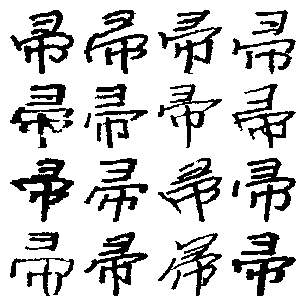 帚 帚 帚 帚
帚 帚 帚 帚
帚 帚 帚 帚
帚 帚 帚 帚